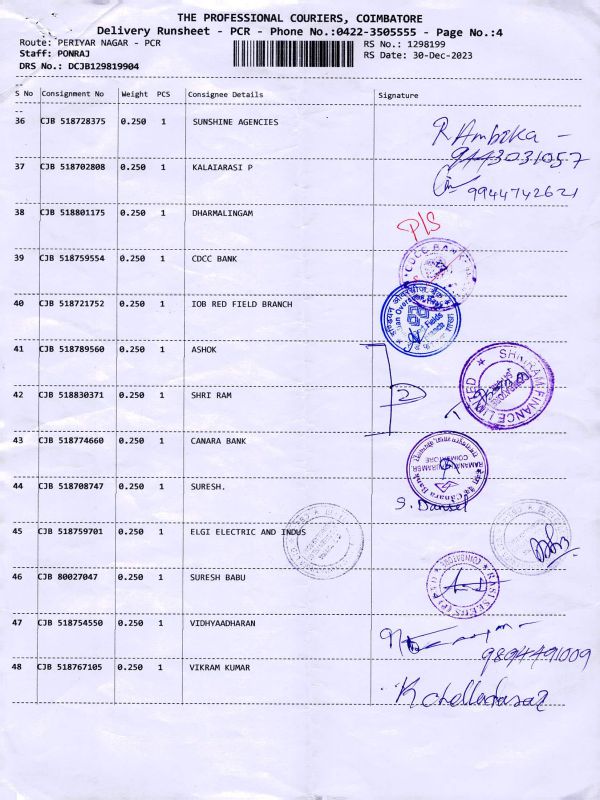 THE PROFESSIONAL COURIERS, COIMBATORE
Delivery Runsheet - PCR - Phone No.:0422-3505555 - Page No.:4
Route: PERIYAR NAGAR - PCR
RS No.: 1298199
Staff: PONRAJ
RS Date: 30-Dec-2023
DRS No.: DCJB129819904
S No Consignment No Weight PCS Consignee Details Signature
36 CJB 518728375 0.250 1 SUNSHINE AGENCIES
R Ambika -
9443031057
37 CJB 518702808 0.250 1 KALAIARASI P
9944742621
38 CJB 518801175 0.250 1 DHARMALINGAM
P/S
39 CJB 518759554 0.250 1 CDCC BANK
CDCC BANK
40 CJB 518721752 0.250 1 IOB RED FIELD BRANCH
41 CJB 518789560 0.250 1 ASHOK
SHRIRAM FINANCE LIMITED
42 CJB 518830371 0.250 1 SHRI RAM
2
43 CJB 518774660 0.250 1 CANARA BANK
Canara Bank
COIMBATORE
44 CJB 518708747 0.250 1 SURESH.
45 CJB 518759701 0.250 1 ELGI ELECTRIC AND INDUS
46 CJB 80027047 0.250 1 SURESH BABU
RASI SEEDS (P) LTD
COIMBATORE
47 CJB 518754550 0.250 1 VIDHYAADHARAN
9894491009
48 CJB 518767105 0.250 1 VIKRAM KUMAR